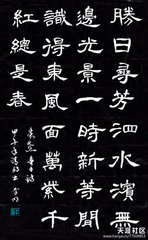 勝日尋芳泗水濱無
邊光景一時新等閒
識得東風面萬紫千
紅總是春
朱熹春日詩
甲午
天涯社区